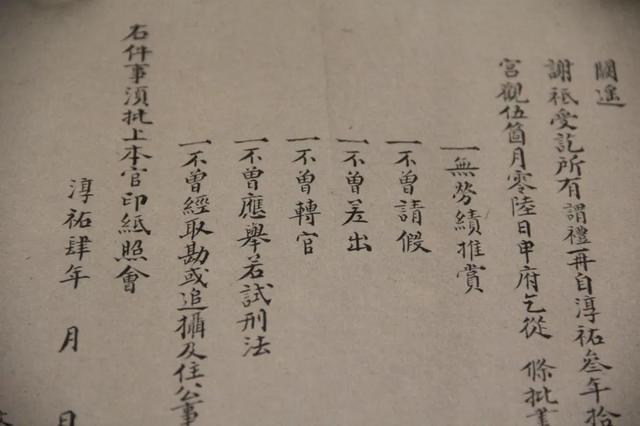 闕遙
謝祗受訖所有謂禮一冊自淳祐叁年拾
宮觀伍箇月零陸日申府乞從 條批書
一無勞績推賞
一不曾請假
一不曾差出
一不曾轉官
一不曾應舉若試刑法
一不曾經取勘或追攝及住公事
右件事須批上本官印紙照會
淳祐肆年 月 日